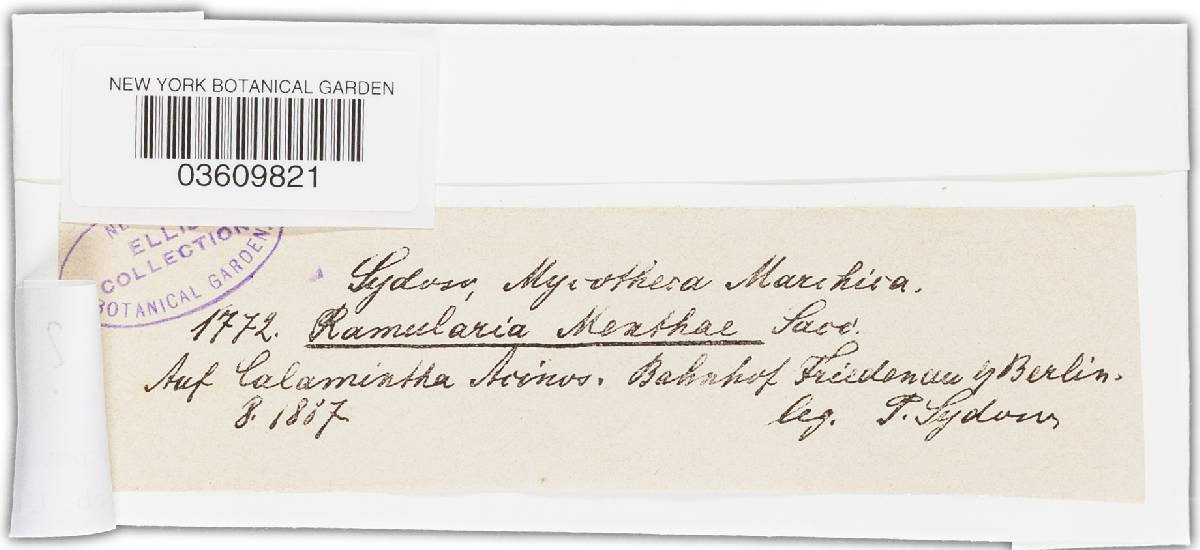 NEW YORK BOTANICAL GARDEN
03609821
ELLIS
COLLECTION
BOTANICAL GARDEN.
Sydow, Mycotheca Marchica.
1772. Ramularia Menthae Sacc.
Auf Calamintha Acinos. Bahnhof Friedenau b/Berlin.
8. 1887. leg. P. Sydow